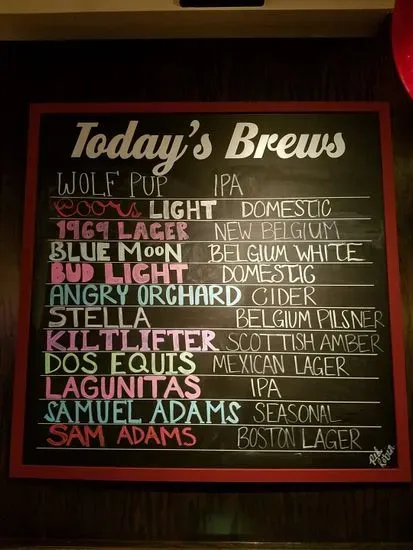 Today's Brews
WOLF PUP IPA
Coors LIGHT DOMESTIC
1969 LAGER NEW BELGIUM
BLUE MOON BELGIUM WHITE
BUD LIGHT DOMESTIC
ANGRY ORCHARD CIDER
STELLA BELGIUM PILSNER
KILTLIFTER SCOTTISH AMBER
DOS EQUIS MEXICAN LAGER
LAGUNITAS IPA
SAMUEL ADAMS SEASONAL
SAM ADAMS BOSTON LAGER